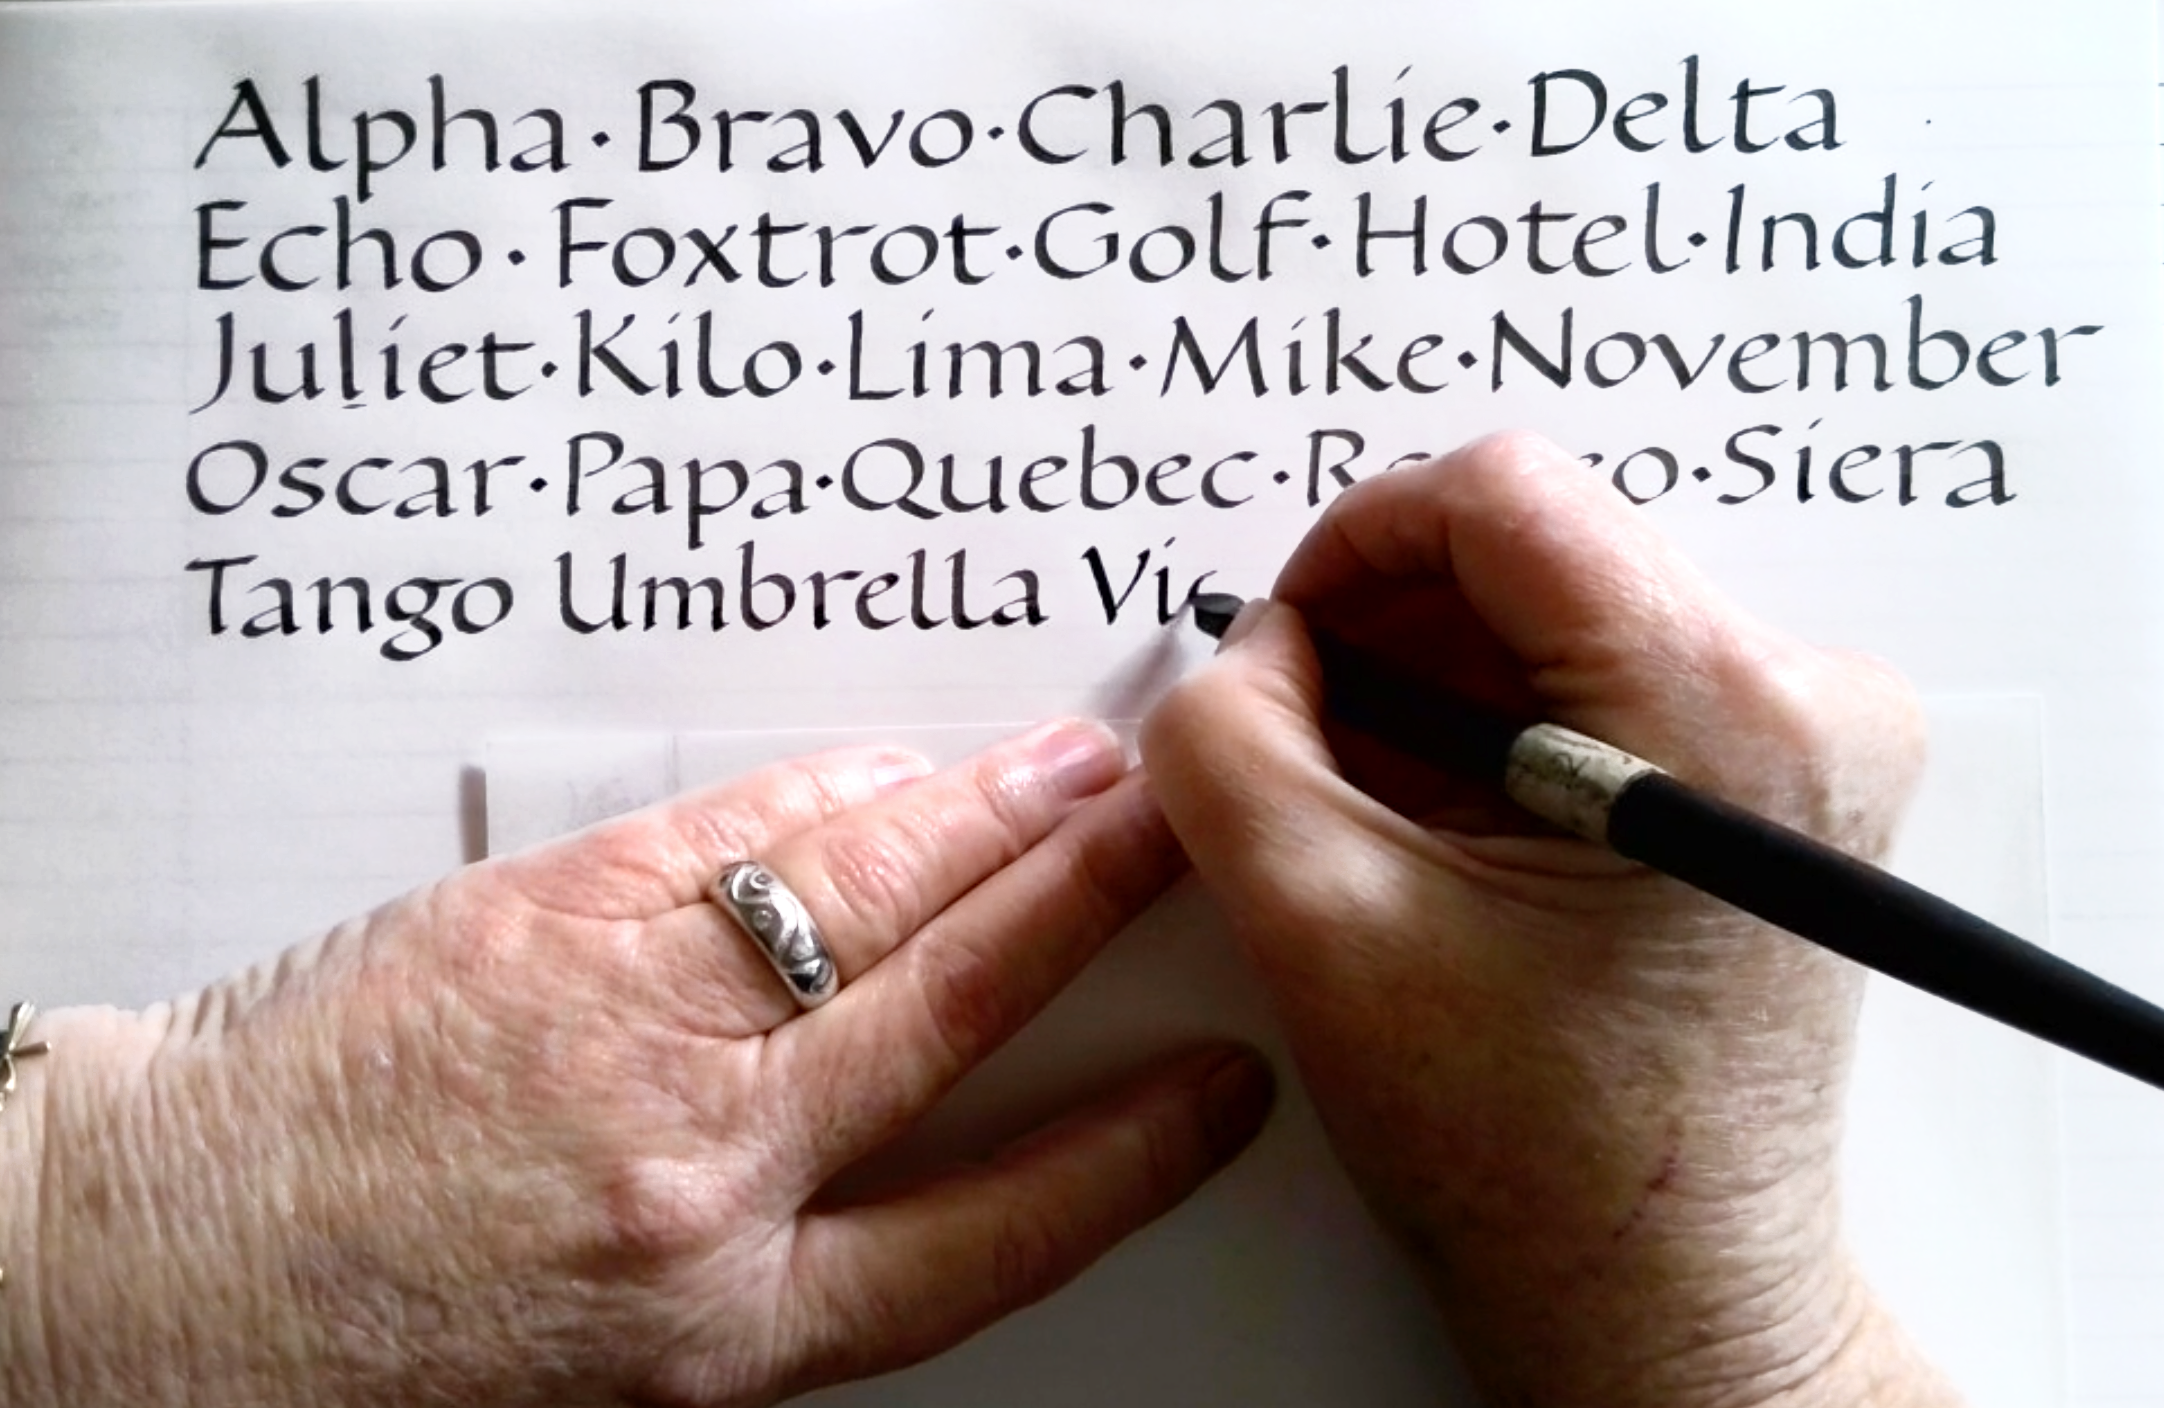 Alpha·Bravo·Charlie·Delta
Echo·Foxtrot·Golf·Hotel·India
Juliet·Kilo·Lima·Mike·November
Oscar·Papa·Quebec·Siera
Tango Umbrella